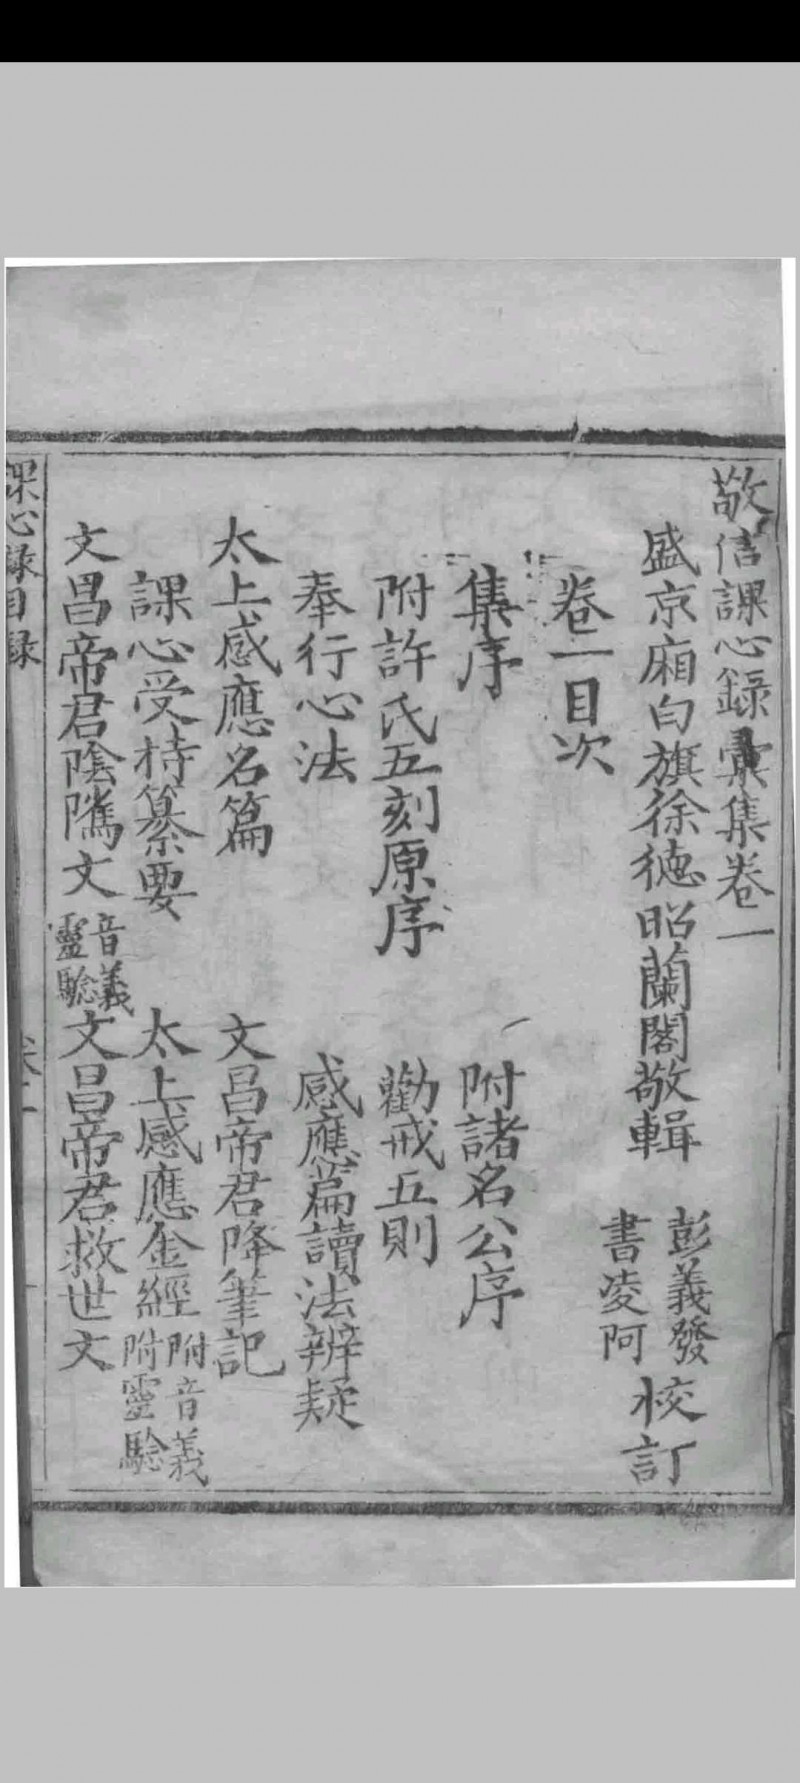 敬信課心錄彙集卷一
盛京廂白旗徐德昭蘭閣敬輯
彭義發
書凌阿
校訂
卷一目次
集序
附諸名公序
附許氏五刻原序
勸戒五則
奉行心法
感應篇讀法辨疑
太上感應名篇
文昌帝君降筆記
課心受持纂要
太上感應金經
附音義
附靈驗
文昌帝君陰隲文
音義
靈驗
文昌帝君救世文
課心錄目錄